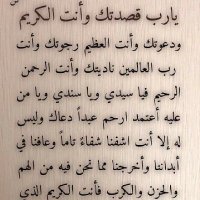 يارب قصدتك وأنت الكريم
ودعوتك وأنت العظيم رجوتك وأنت
رب العالمين ناديتك وأنت الرحمن
الرحيم فيا سيدي ويا سندي ويا من
عليه أعتمد ارحم عبداً دعاك وليس
له إلا أنت اشفنا شفاءً تاماً وعافنا في
أبداننا وأخرجنا مما نحن فيه من الهم
والحزن والكرب فأنت الكريم الذي